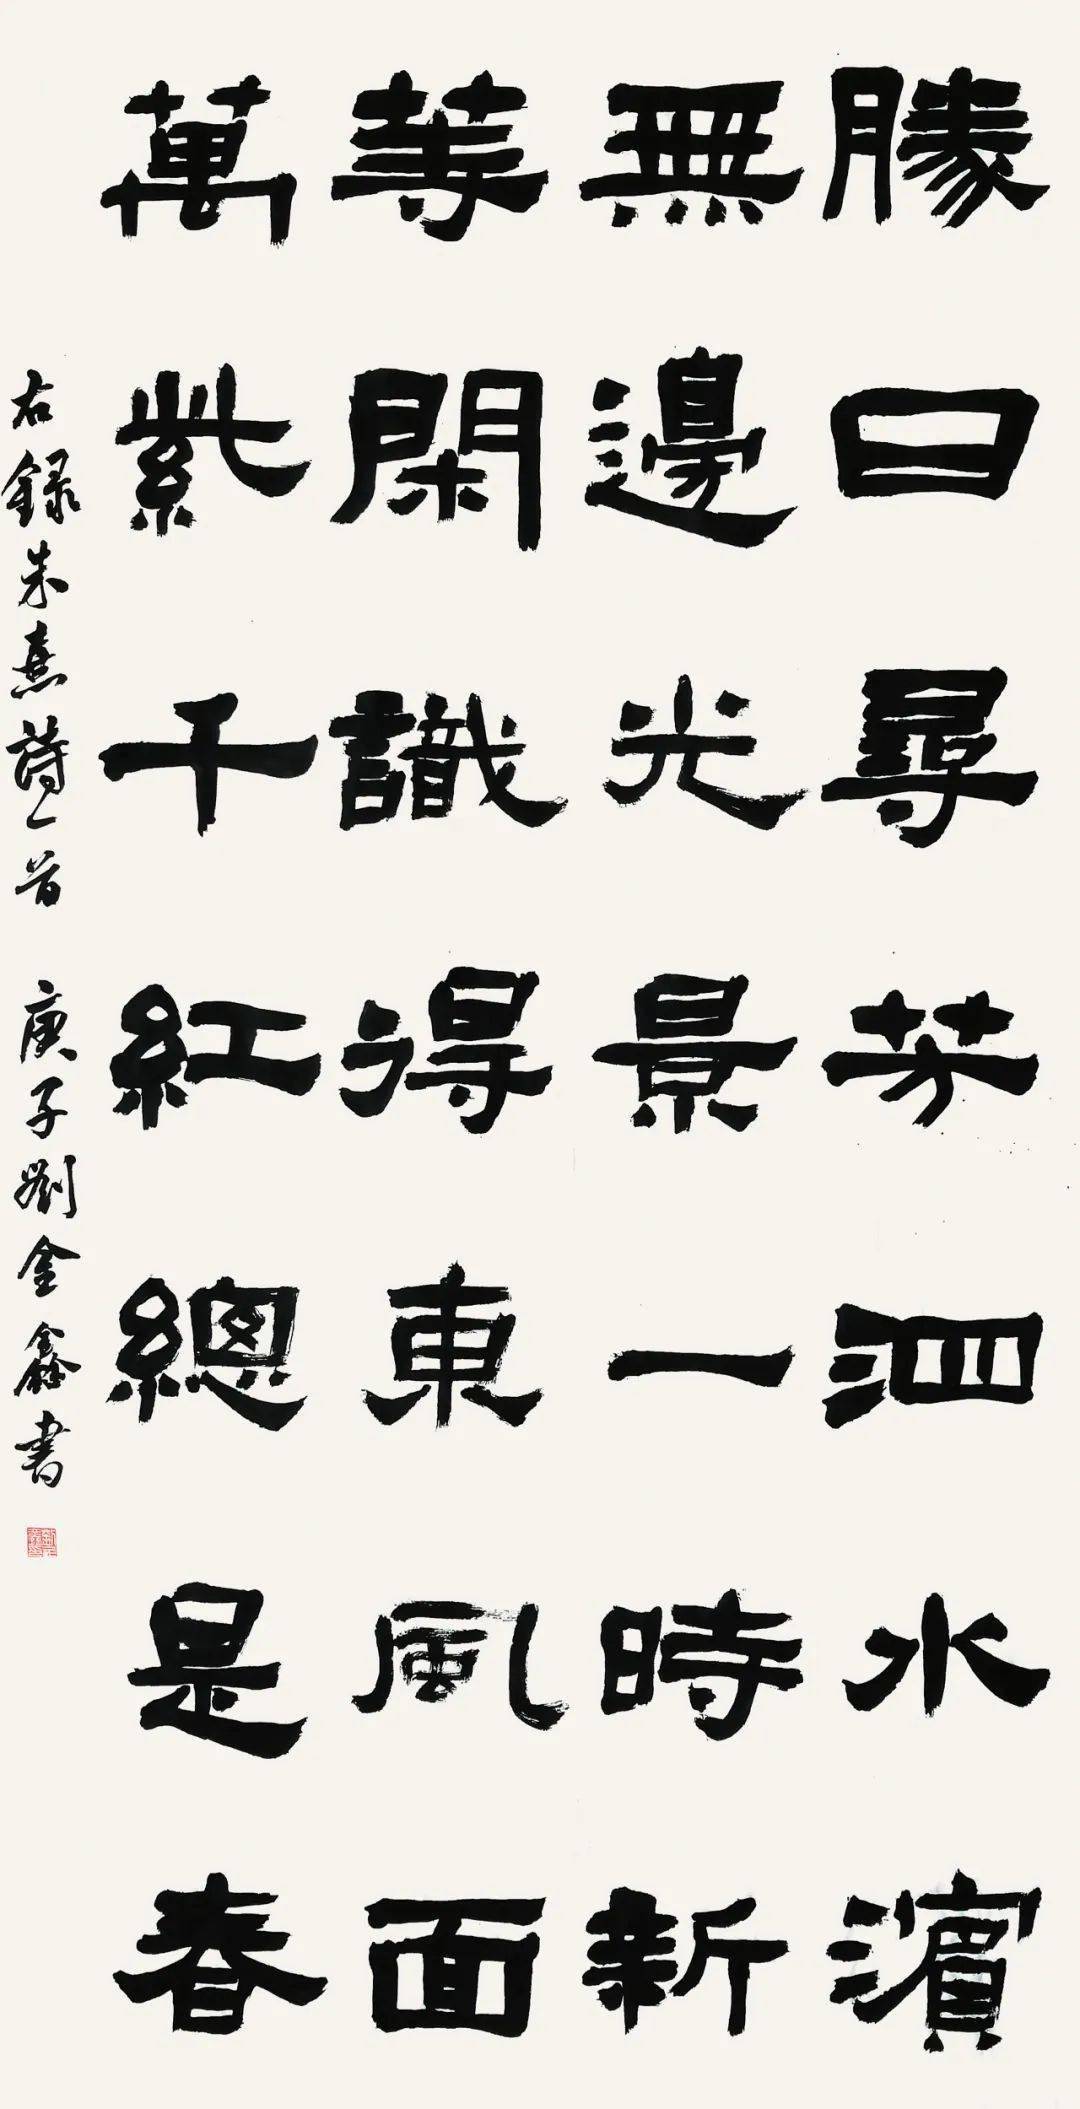 勝日尋芳泗水濱
無邊光景一時新
等閑識得東風面
萬紫千紅總是春
右録朱熹詩一首 庚子劉金鑫書